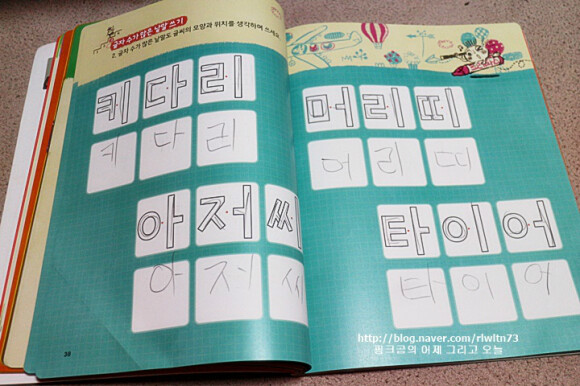 글자 수가 많은 낱말 쓰기
글자 수가 많은 낱말도 글씨의 모양과 위치를 생각하며 쓰세요
케다리
케다리
아저씨
아저씨
38
머리띠
머리띠
타이어
타이어
http://blog.naver.com/rlwltn73
핑크곰의 어제 그리고 오늘